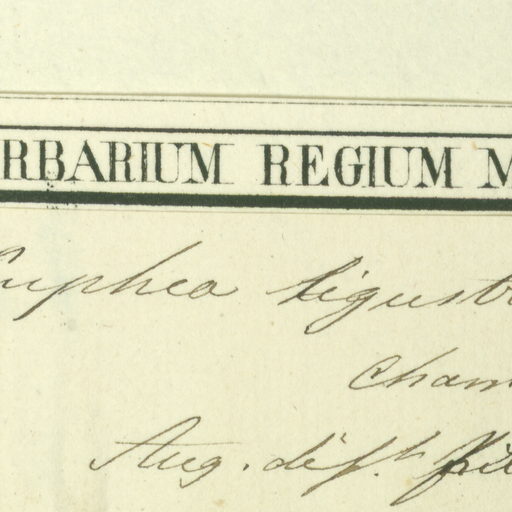 RBARIUM REGIUM M
Cuphea ligustr
Cham
Aug. dÿs.h